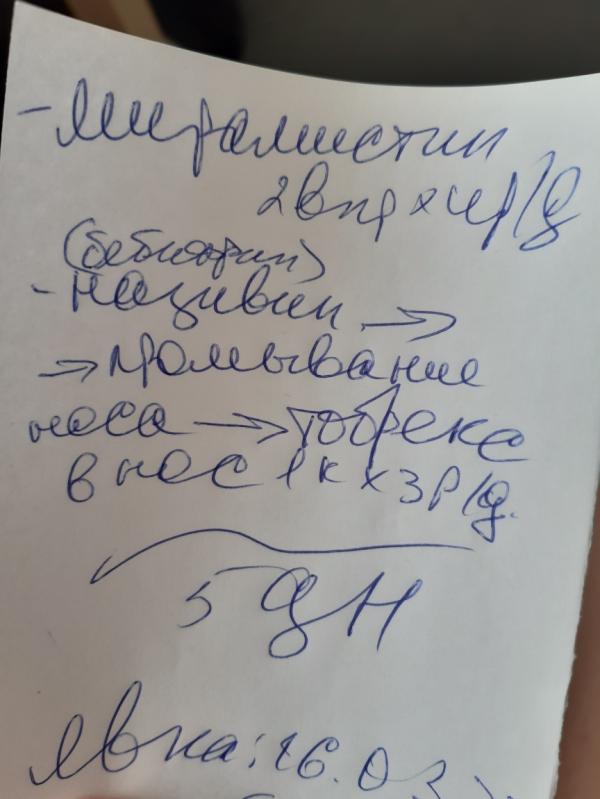 - Мирамистин
2 впр x 4р/д
- Називин →
→ промывание
носа → Тобрекс
в нос 1 к x 3 р/д.
5 дн
Явка: 16.03